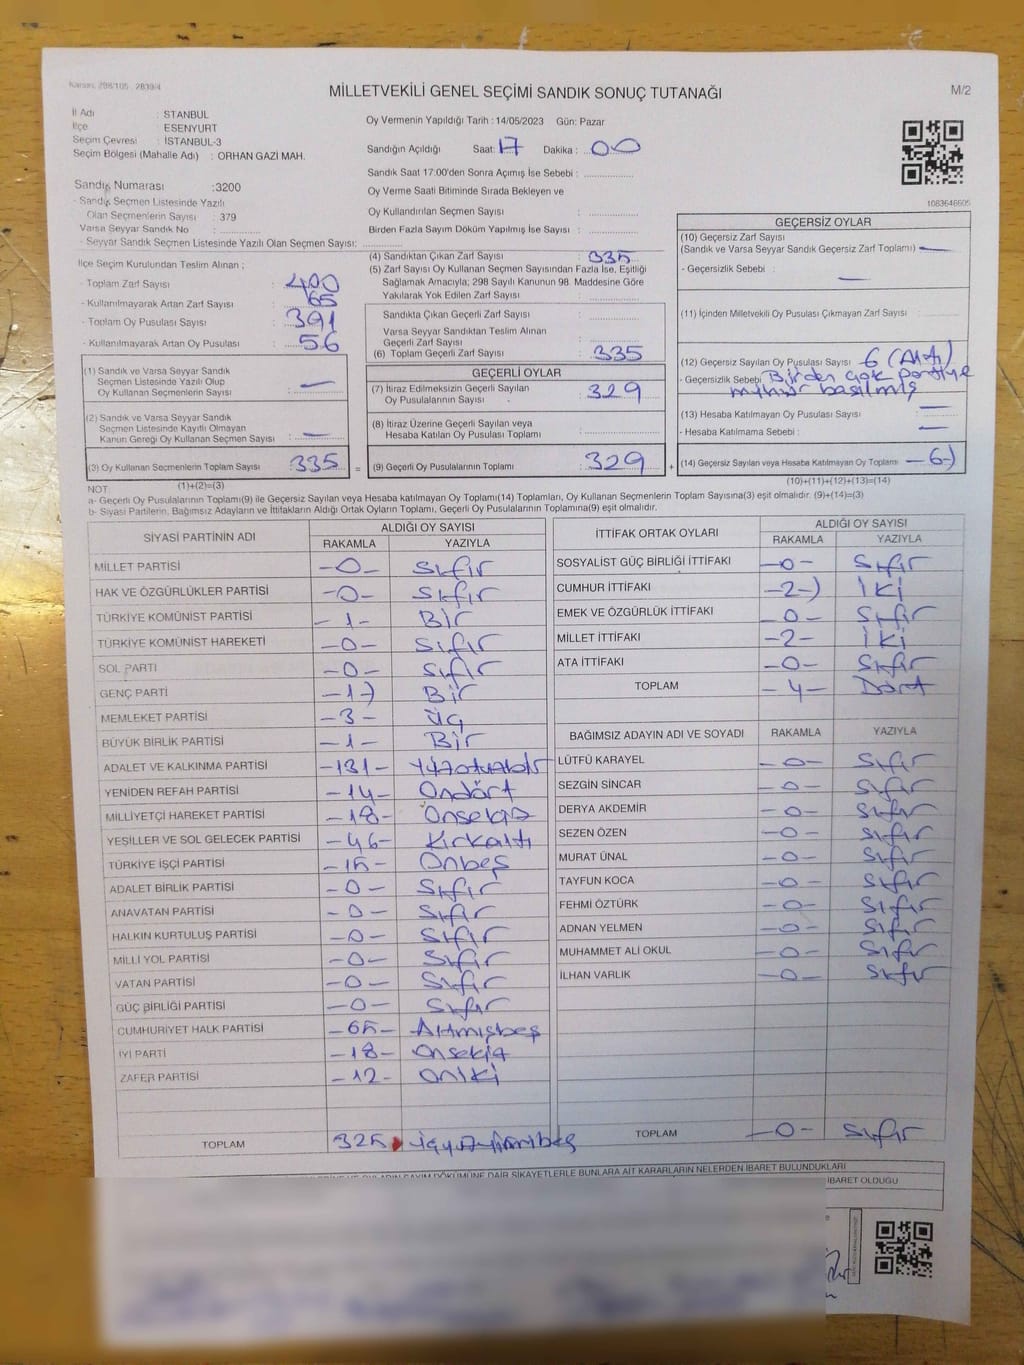 Kanun: 298/105 2839/4
MİLLETVEKİLİ GENEL SEÇİMİ SANDIK SONUÇ TUTANAĞI
M/2
İl Adı : STANBUL
İlçe ESENYURT
Seçim Çevresi : İSTANBUL-3
Seçim Bölgesi (Mahalle Adı) : ORHAN GAZİ MAH.
Oy Vermenin Yapıldığı Tarih : 14/05/2023 Gün: Pazar
Sandığın Açıldığı Saat: 17 Dakika : 00
Sandık Saat 17:00'den Sonra Açımış İse Sebebi :
Oy Verme Saati Bitiminde Sırada Bekleyen ve
Oy Kullandırılan Seçmen Sayısı :
Birden Fazla Sayım Döküm Yapılmış İse Sayısı :
1083646605
Sandık Numarası :3200
- Sandık Seçmen Listesinde Yazılı
Olan Seçmenlerin Sayısı : 379
Varsa Seyyar Sandık No :
- Seyyar Sandık Seçmen Listesinde Yazılı Olan Seçmen Sayısı:
İlçe Seçim Kurulundan Teslim Alınan ;
- Toplam Zarf Sayısı : 400
- Kullanılmayarak Artan Zarf Sayısı : 65
- Toplam Oy Pusulası Sayısı : 391
- Kullanılmayarak Artan Oy Pusulası : 56
(1) Sandık ve Varsa Seyyar Sandık
Seçmen Listesinde Yazılı Olup
Oy Kullanan Seçmenlerin Sayısı : —
(2) Sandık ve Varsa Seyyar Sandık
Seçmen Listesinde Kayıtlı Olmayan
Kanun Gereği Oy Kullanan Seçmen Sayısı : —
(3) Oy Kullanan Seçmenlerin Toplam Sayısı : 335 =
(1)+(2)=(3)
(4) Sandıktan Çıkan Zarf Sayısı : 335
(5) Zarf Sayısı Oy Kullanan Seçmen Sayısından Fazla İse, Eşitliği
Sağlamak Amacıyla; 298 Sayılı Kanunun 98. Maddesine Göre
Yakılarak Yok Edilen Zarf Sayısı :
Sandıkta Çıkan Geçerli Zarf Sayısı :
Varsa Seyyar Sandıktan Teslim Alınan
Geçerli Zarf Sayısı :
(6) Toplam Geçerli Zarf Sayısı : 335
GEÇERLİ OYLAR
(7) İtiraz Edilmeksizin Geçerli Sayılan
Oy Pusulalarının Sayısı : 329
(8) İtiraz Üzerine Geçerli Sayılan veya
Hesaba Katılan Oy Pusulası Toplamı :
(9) Geçerli Oy Pusulalarının Toplamı : 329 +
GEÇERSİZ OYLAR
(10) Geçersiz Zarf Sayısı
(Sandık ve Varsa Seyyar Sandık Geçersiz Zarf Toplamı) —
- Geçersizlik Sebebi : —
(11) İçinden Milletvekili Oy Pusulası Çıkmayan Zarf Sayısı :
(12) Geçersiz Sayılan Oy Pusulası Sayısı : 6 (Altı)
- Geçersizlik Sebebi : Birden çok partiye
mühür basılmış
(13) Hesaba Katılmayan Oy Pusulası Sayısı : —
- Hesaba Katılmama Sebebi : —
(14) Geçersiz Sayılan veya Hesaba Katılmayan Oy Toplamı —6-)
(10)+(11)+(12)+(13)=(14)
NOT
a- Geçerli Oy Pusulalarının Toplamı(9) ile Geçersiz Sayılan veya Hesaba katılmayan Oy Toplamı(14) Toplamları, Oy Kullanan Seçmenlerin Toplam Sayısına(3) eşit olmalıdır. (9)+(14)=(3)
b- Siyasi Partilerin, Bağımsız Adayların ve İttifakların Aldığı Ortak Oyların Toplamı, Geçerli Oy Pusulalarının Toplamına(9) eşit olmalıdır.
SİYASİ PARTİNİN ADI ALDIĞI OY SAYISI
RAKAMLA YAZIYLA
MİLLET PARTİSİ -0- Sıfır
HAK VE ÖZGÜRLÜKLER PARTİSİ -0- Sıfır
TÜRKİYE KOMÜNİST PARTİSİ -1- Bir
TÜRKİYE KOMÜNİST HAREKETİ -0- Sıfır
SOL PARTİ -0- Sıfır
GENÇ PARTİ -1-) Bir
MEMLEKET PARTİSİ -3- Üç
BÜYÜK BİRLİK PARTİSİ -1- Bir
ADALET VE KALKINMA PARTİSİ -131- Yüzotuzbir
YENİDEN REFAH PARTİSİ -14- Ondört
MİLLİYETÇİ HAREKET PARTİSİ -18- Onsekiz
YEŞİLLER VE SOL GELECEK PARTİSİ -46- Kırkaltı
TÜRKİYE İŞÇİ PARTİSİ -15- Onbeş
ADALET BİRLİK PARTİSİ -0- Sıfır
ANAVATAN PARTİSİ -0- Sıfır
HALKIN KURTULUŞ PARTİSİ -0- Sıfır
MİLLİ YOL PARTİSİ -0- Sıfır
VATAN PARTİSİ -0- Sıfır
GÜÇ BİRLİĞİ PARTİSİ -0- Sıfır
CUMHURİYET HALK PARTİSİ -65- Altmışbeş
İYİ PARTİ -18- Onsekiz
ZAFER PARTİSİ -12- Oniki
TOPLAM 325 üçyüzyirmibeş
İTTİFAK ORTAK OYLARI ALDIĞI OY SAYISI
RAKAMLA YAZIYLA
SOSYALİST GÜÇ BİRLİĞİ İTTİFAKI -0- Sıfır
CUMHUR İTTİFAKI -2-) İki
EMEK VE ÖZGÜRLÜK İTTİFAKI -0- Sıfır
MİLLET İTTİFAKI -2- İki
ATA İTTİFAKI -0- Sıfır
TOPLAM -4- Dört
BAĞIMSIZ ADAYIN ADI VE SOYADI RAKAMLA YAZIYLA
LÜTFÜ KARAYEL -0- Sıfır
SEZGİN SİNCAR -0- Sıfır
DERYA AKDEMİR -0- Sıfır
SEZEN ÖZEN -0- Sıfır
MURAT ÜNAL -0- Sıfır
TAYFUN KOCA -0- Sıfır
FEHMİ ÖZTÜRK -0- Sıfır
ADNAN YELMEN -0- Sıfır
MUHAMMET ALİ OKUL -0- Sıfır
İLHAN VARLIK -0- Sıfır
TOPLAM -0- Sıfır
DÖKÜMÜNE DAİR ŞİKAYETLERLE BUNLARA AİT KARARLARIN NELERDEN İBARET BULUNDUKLARI
İBARET OLDUĞU